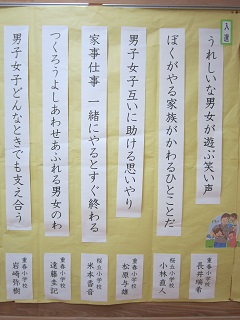 入選
うれしいな男女が遊ぶ笑い声
重春小学校
長井瑞希
ぼくがやる家族がかわるひとことだ
桜丘小学校
小林直人
男子女子互いに助ける思いやり
重春小学校
松原与雄
家事仕事 一緒にやるとすぐ終わる
桜丘小学校
米本香音
つくろうよしあわせあふれる男女のわ
重春小学校
遠藤圭記
男子女子どんなときでも支え合う
重春小学校
岩崎弥樹